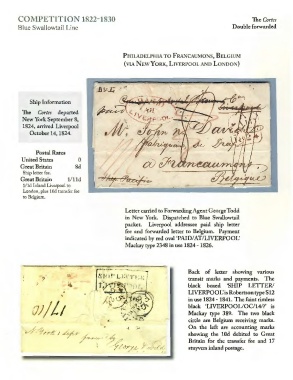 COMPETITION 1822-1830
Blue Swallowtail Line
The Cortes
Double forwarded
PHILADELPHIA TO FRANCAUMONS, BELGIUM
(VIA NEW YORK, LIVERPOOL AND LONDON)
Ship Information
The Cortes departed
New York September 8,
1824, arrived Liverpool
October 14, 1824.
Postal Rates
United States 0
Great Britain 8d
Ship letter fee.
Great Britain 1/11d
1/1d Inland Liverpool to
London, plus 10d transit fee
to Belgium.
Mr. John n. David
fabriquant de
a Francaumont
Belgique
Ship Pacific
Letter carried to Forwarding Agent George Todd
in New York. Dispatched to Blue Swallowtail
packet. Liverpool addressee paid ship letter
fee and forwarded letter to Belgium. Payment
indicated by red oval 'PAID/AT/LIVERPOOL'
Mackay type 2348 in use 1824 - 1826.
SHIP LETTER
LIVERPOOL
Back of letter showing various
transit marks and payments. The
black boxed 'SHIP LETTER/
LIVERPOOL' is Robertson type S12
in use 1824 - 1841. The faint timeless
black 'LIVERPOOL/OC/14/' is
Mackay type 389. The two black
circle are Belgium receiving marks.
On the left are accounting marks
showing the 10d debited to Great
Britain for the transfer fee and 17
stuyvers inland postage.